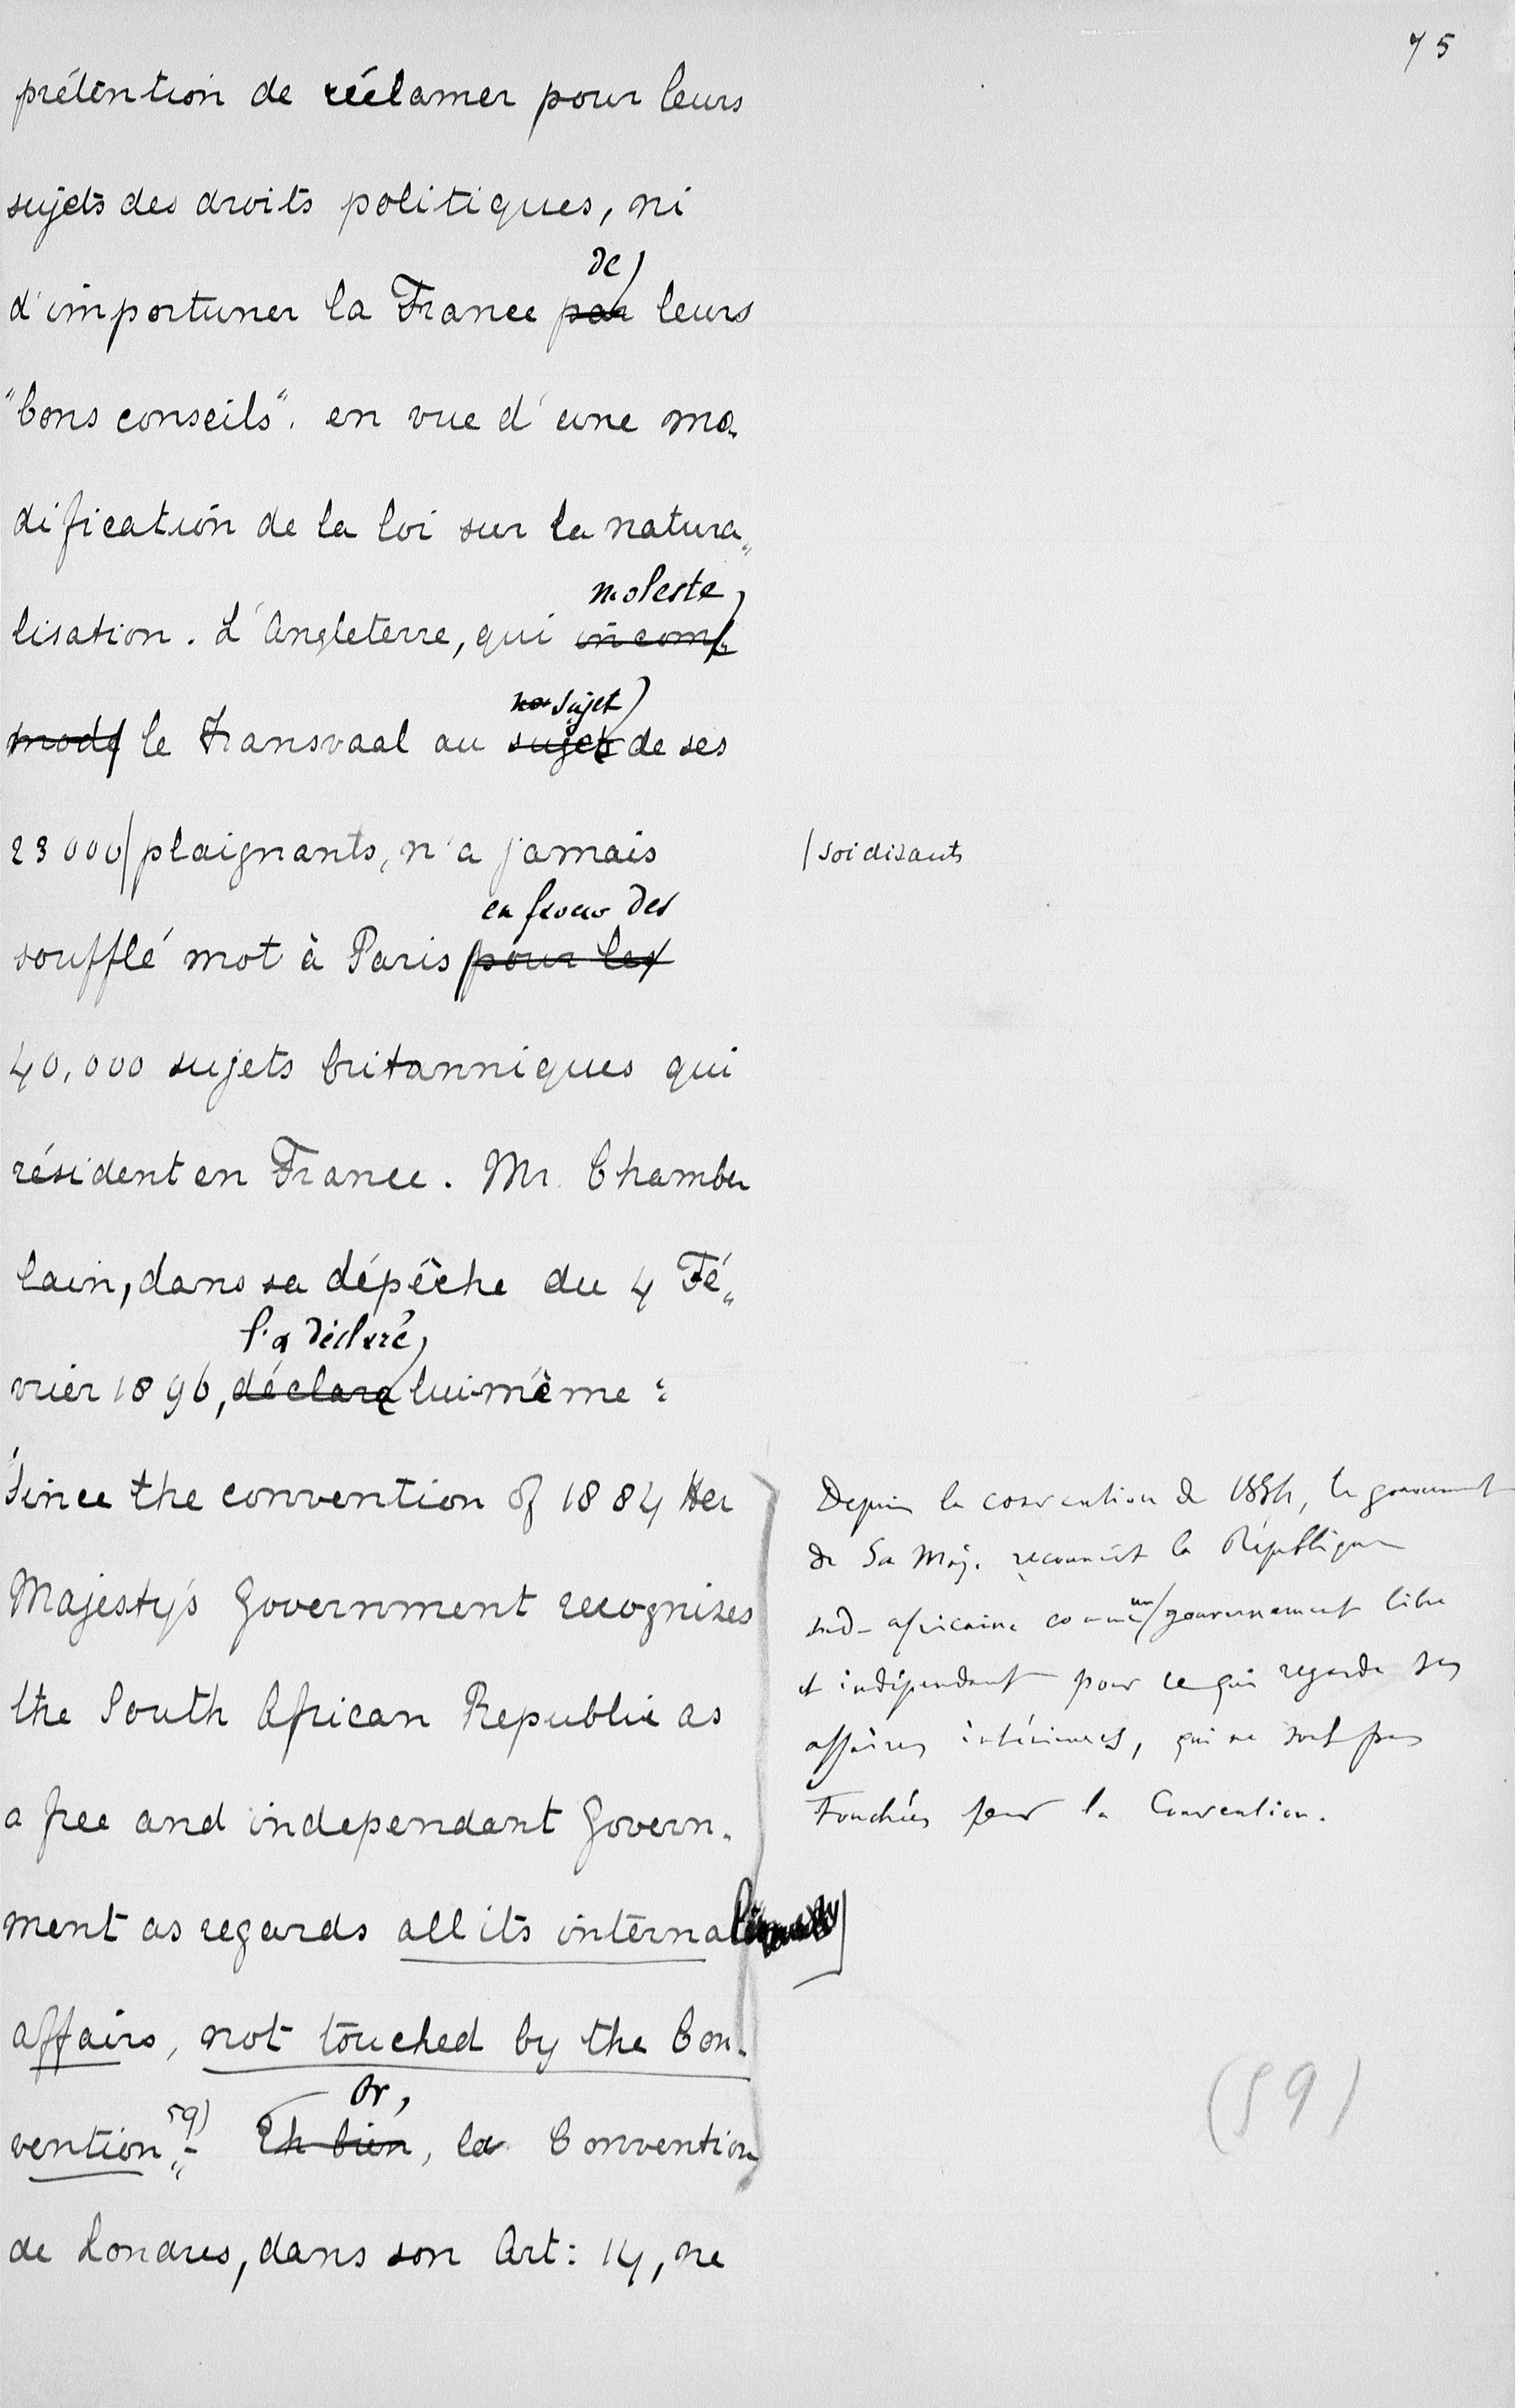 75
prétention de réclamer pour leurs
sujets des droits politiques, ni
de
d'importuner la France par leurs
"bons conseils". en vue d'une mo-
dification de la loi sur la natura„
moleste
lisation. L'Angleterre, qui incom-
no sujet
mode le Transvaal au sujet de ses
23000 plaignants, n'a jamais
/soi disants
en faveur des
soufflé mot à Paris pour les
40,000 sujets britanniques qui
résident en France. Mr. Chamber
lain, dans sa dépêche du 4 Fé„
l'a déclaré
vrier 1896, déclara lui-même:
Since the convention of 1884 Her
Majesty's Government recognises
the South African Republic as
a free and independant Govern-
ment as regards all its internal
affairs, not touched by the Con-
or,
vention„ 59) - Eh bien, la Convention
de Londres, dans son Art: 14, ne
Depuis la convention de 1884, le gouvernement
de Sa Maj. reconnaît la République
sud-africaine comme un/gouvernement libre
et indépendant pour ce qui regarde ses
affaires intérieures, qui ne sont pas
touchées par la Convention.
(59)